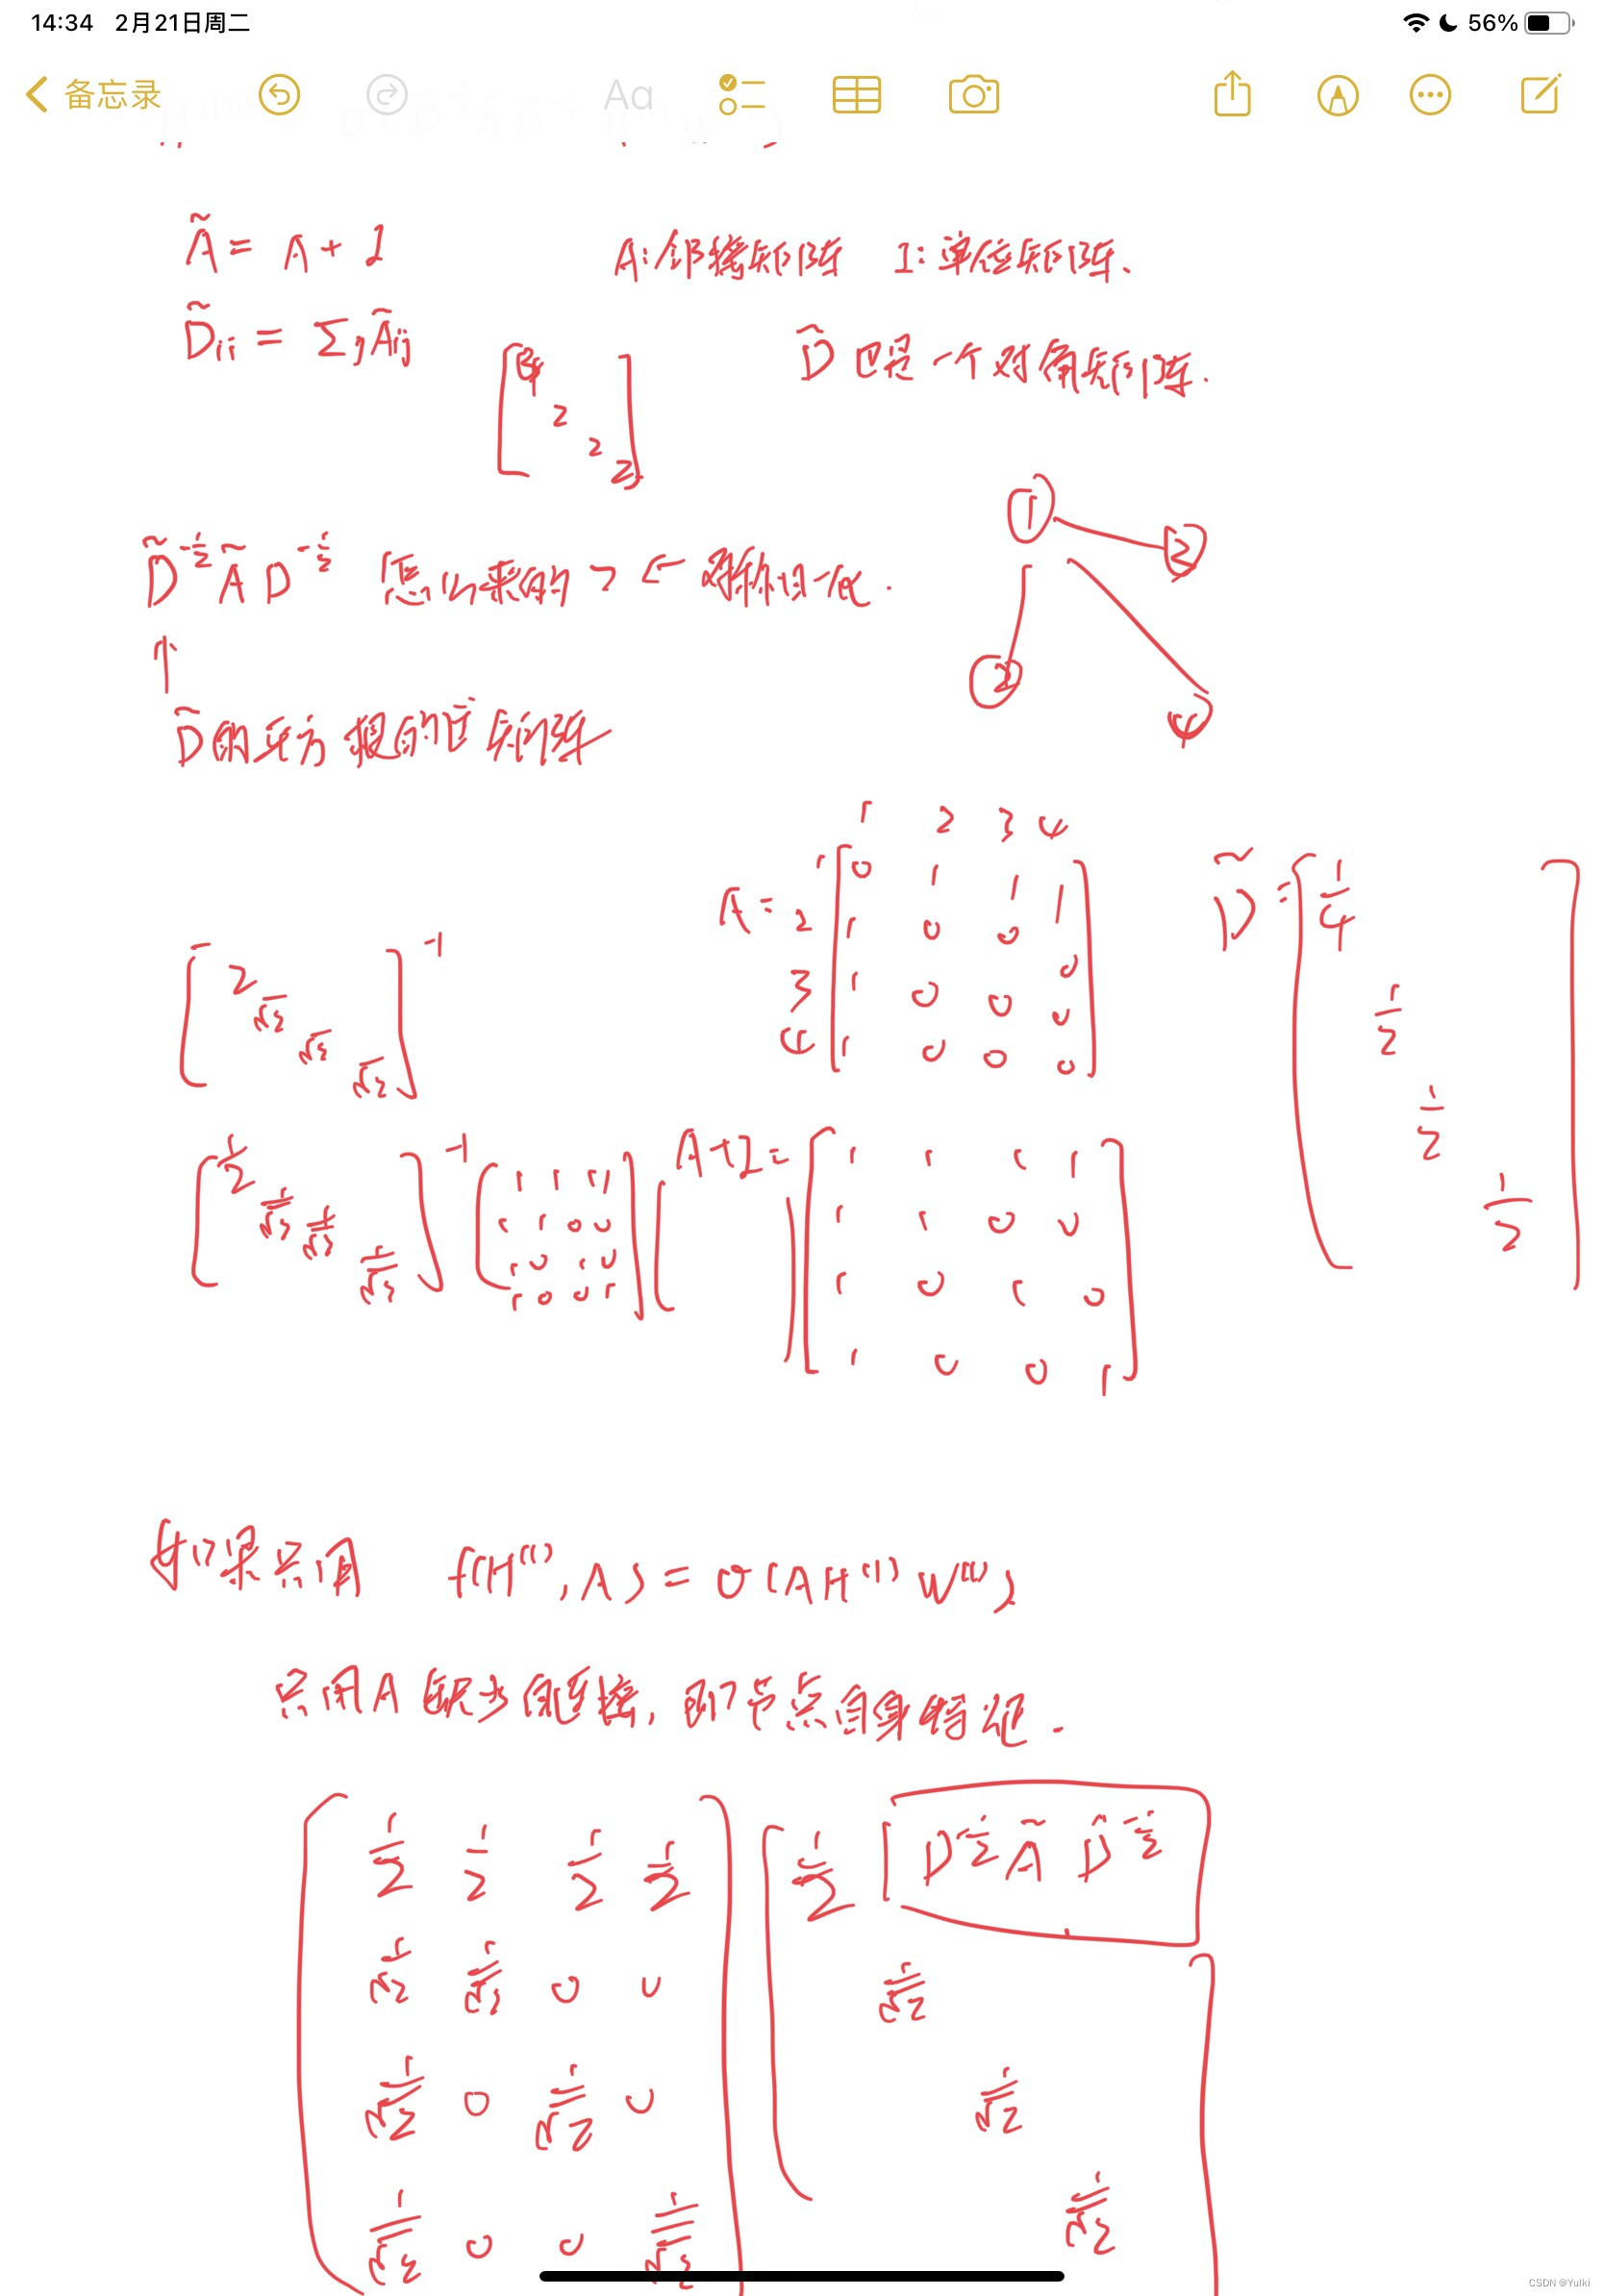 14:34 2月21日周二
56%
备忘录
Aa
Ã = A + I A:邻接矩阵 I:单位矩阵.
D̃ii = Σj Ãij
D̃ 也是一个对角矩阵.
2
2
2
① ③
② ④
D̃^-1/2 Ã D^-1/2 怎么来的? ← 对称归一化.
↑
D̃的平方根的逆矩阵
1 2 3 4
A = 1 [0 1 1 1]
2 [1 0 0 0]
3 [1 0 0 0]
4 [1 0 0 0]
D̃ = [1/4
1/2
1/2
1/2]
[2
√2
√2
√2]^-1
[1/2
1/√2
1/√2
1/√2]^-1
[1 1 1 1
1 1 0 0
1 0 1 0
1 0 0 1] [ ]
A+I = [1 1 1 1
1 1 0 0
1 0 1 0
1 0 0 1]
如果只用 f(H^(l), A) = σ(AH^(l) W^(l))
只用A缺少自连接, 即节点自身特征.
[1/2 1/2 1/2 1/2
1/√2 1/√2 0 0
1/√2 0 1/√2 0
1/√2 0 0 1/√2]
[1/2
1/√2
1/√2
1/√2]
D^-1/2 Ã D̃^-1/2
CSDN @Yulki